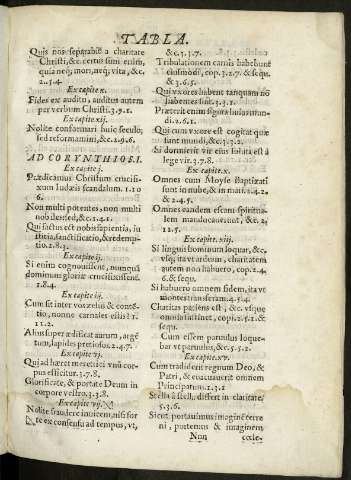 TABLA.
Quis nos separabit a charitate
Christi, &c. certus sum enim,
quia neq; mors, neq; vita, &c.
2.5.4.
Ex capite x.
Fides ex auditu, auditus autem
per verbum Christi.
Ex capite xij.
Nolite conformari huic seculo,
sed reformamini, &c. 1.9.6.
AD CORYNTHIOS I.
Ex capite j.
Prædicamus Christum crucifi-
xum Iudæis scandalum. 1.10
6.
Non multi potentes, non multi
nobiles sed, &c.1.4.1.
Qui factus est nobis sapientia, iu
stitia, sanctificatio, & redemp-
tio. 2.8.3.
Ex capite ij.
Si enim cognouissent, nunquã
dominum gloriæ crucifixissent
1.8.4.
Ex capite iij.
Cum sit inter vos zelus & conté-
tio, nonne carnales estis? 1.
11.2.
Alius superædificat aurum, argé
tum, lapides pretiosos. 2.4.7.
Ex capite vj.
Qui adhæret meretrici vnũ cor-
pus efficitur. 3.7.8.
Glorificate, & portate Deum in
corpore vestro. 3.3.8.
Ex capite vij.
Nolite fraudare inuicem, nisi for
te ex consensu ad tempus, vt,
&c.3.7.
Tribulationem carnis habebunt
eiusmodi, cop. 3.2.7. & sequ.
& 3.6.5.
Qui vxores habent tanquam nõ
habentes sint. 3.3.1.
Præterit enim figura huius mun-
di. 2.6.1.
Qui cum vxore est cogitat quæ
sunt mundi, &c.3.3.2.
Si dormierit vir eius soluta est à
lege viri. 3.7.8.
Ex capite x.
Omnes cum Moyse Baptizati
sunt in nube, & in mari. 2.4.2.
& 4.5.
Omnes eandem escam spiritua-
lem manducauerunt, &c. 2.
11.5.
Ex capite. xiij.
Si linguis hominum loquar, &c.
vsq; ita vt ardeam, charitatem
autem non habuero, cop. 2.4.
6. & sequ.
Si habuero omnem fidem, ita vt
montes transferam. 4.5.4.
Charitas patiens est, &c. vsque
omnia sustinet, cop. 2.5.1. &
sequ.
Cum essem paruulus loque-
bar vt paruulus, &c. 5.5.1.
Ex capite. xv.
Cum tradiderit regnum Deo, &
Patri, & euacuauerit omnem
Principatum. 2.3.1
Stella à stella, differt in claritate
5.3.6.
Sicut portauimus imaginé terre
ni, portemus & imaginem
Nnn cæle-